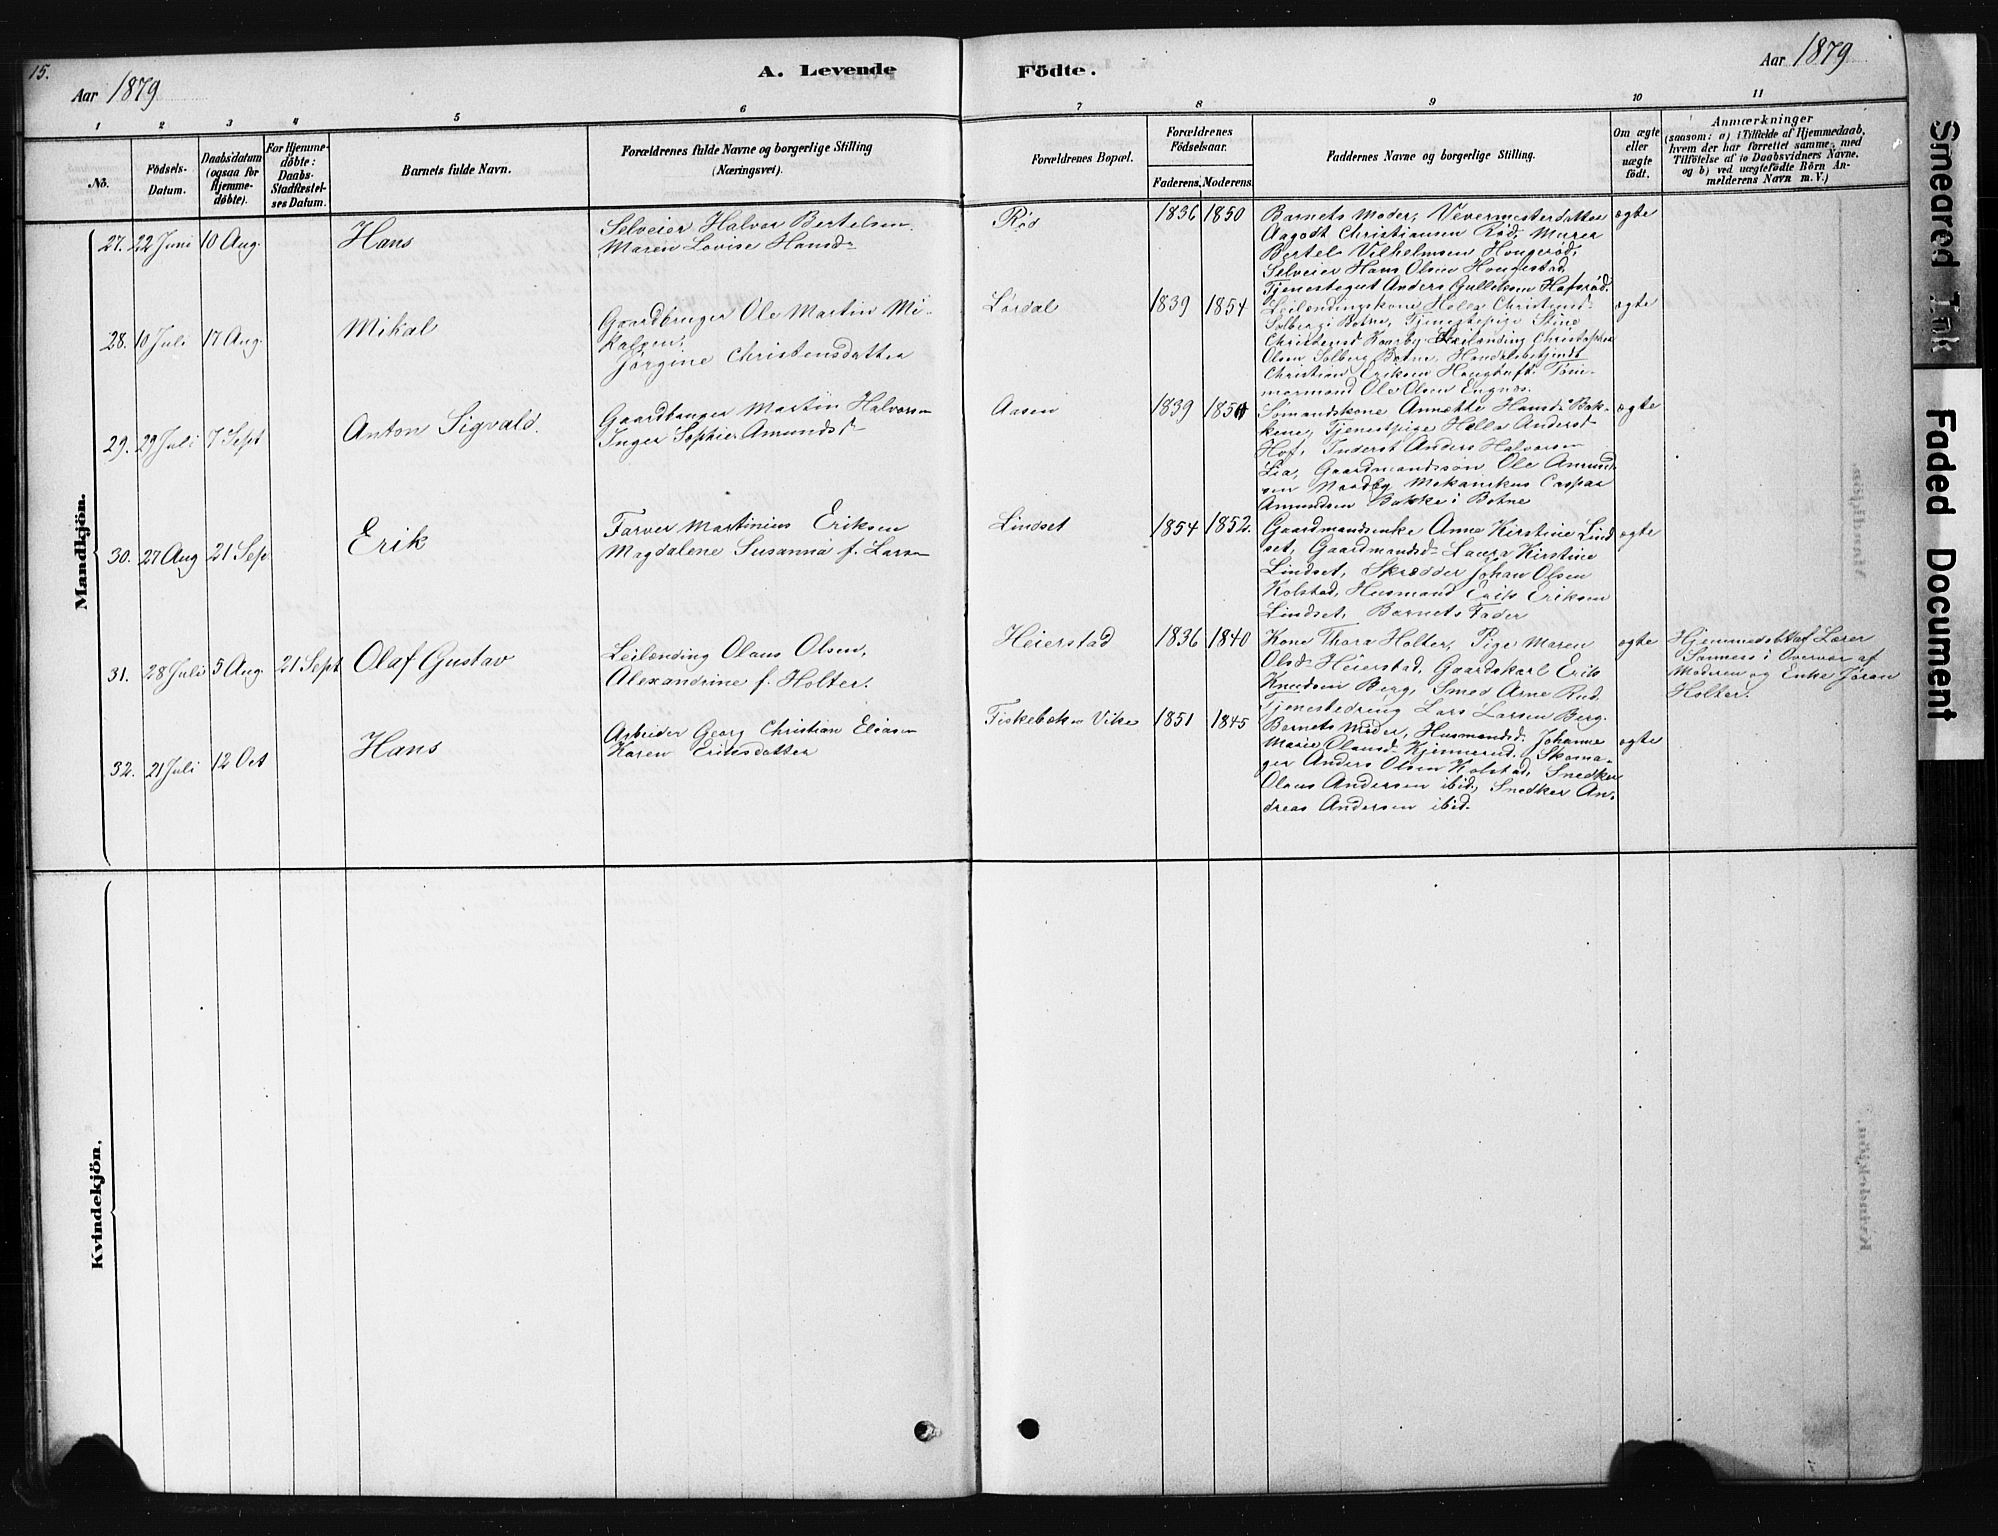 15.
Aar 1879
A. Levende
Födte.
Aar 1879
1 2 3 4 5 6 7 8 9 10 11
No.
Födsels-
Datum.
Daabsdatum
(ogsaa for
Hjemme-
døbte).
For Hjemme-
døbte:
Daabs-
Stadfæstel-
ses Datum.
Barnets fulde Navn.
Forældrenes fulde Navne og borgerlige Stilling
(Næringsvei).
Forældrenes Bopæl.
Forældrenes
Födselsaar.
Faderens. Moderens.
Faddernes Navne og borgerlige Stilling.
Om ægte
eller
uægte
født.
Anmærkninger
(saasom: a) i Tilfælde af Hjemmedaab,
hvem der har forrettet samme, med
Tilföielse af to Daabsvidners Navne.
og b) ved uægtefödte Börn An-
melderens Navn m. V.)
Mandkjön.
27. 22 Juni 10 Aug. Hans
Selveier Halvor Bertelsen.
Maren Lovise Hansd-
Rød 1836 1850
Barnets Moder, Vevermesterdatter
Aagodt Christiansen Rød, Murer
Bertel Vilhelmsen Hougerød,
Selveier Hans Olsen Hougestad,
Tjenestegut Anders Gulliksen Hafsrød.
ægte
28. 10 Juli 17 Aug. Mikal
Gaardbruger Ole Martin Mi-
kalsen,
Jørgine Christensdatter
Lørdal 1839 1854
Leilændingskone Helle Christensd-
Solberg i Botne, Tjenestepige Stine
Christensd Kaarby Leilænding Christopher
Olsen Solberg Botne, Handelsbetjent
Christian Eriksen Hougtuft. Töm-
mermand Ole Olsen Engnæs.
ægte
29. 29 Juli 7 Sept Anton Sigvald.
Gaardbruger Martin Halvorsen
Inger Sophie Amundsd-
Aasen 1839
Sömandskone Annette Hansd- Bak-
kene, Tjenestpige Helle Andersd-
Hof, Inderst Anders Halvorsen
Lia, Gaardmandssön Ole Amund-
sen Nordby Mekanikus Caspar
Amundsen Bakke i Botne
ægte
30. 27 Aug 21 Sep Erik
Farver Martinius Eriksen
Magdalene Susanna f. Larsen
Lindset 1854 1852.
Gaardmandsenke Anne Kirstine Lind
set, Gaardmandsd- Laura Kirstine
Lindset, Skrædder Johan Olsen
Kolstad, Husmand Erik Eriksen
Lindset, Barnets Fader
ægte
31. 28 Juli 5 Aug. 21 Sept Olaf Gustav
Leilænding Olaus Olsen,
Alexandrine f. Holter.
Heierstad 1836 1840
Kone Thora Holter, Pige Maren
Olsd- Heierstad, Gaardskarl Erik
Knudsen Berg, Smed Arne Rud.
Tjenestedreng Lars Larsen Berg.
ægte
Hjemmedöbt af Lærer
Sanness i Overvær af
Moderen og Enke Jøran
Holter.
32. 21 Juli 12 Oct Hans
Arbeider Georg Christian Eliasen
Karen Eriksdatter
Fiskebæk 1851 1845
Barnets Moder, Husmandsd. Johanne
Marie Olausd- Kjennerud. Skoma-
ger Anders Olsen Kolstad, Snedker
Olaus Andersen ibid, Snedker An-
dreas Andersen ibid.
ægte
Kvindekjön.
Smeared Ink
Faded Document